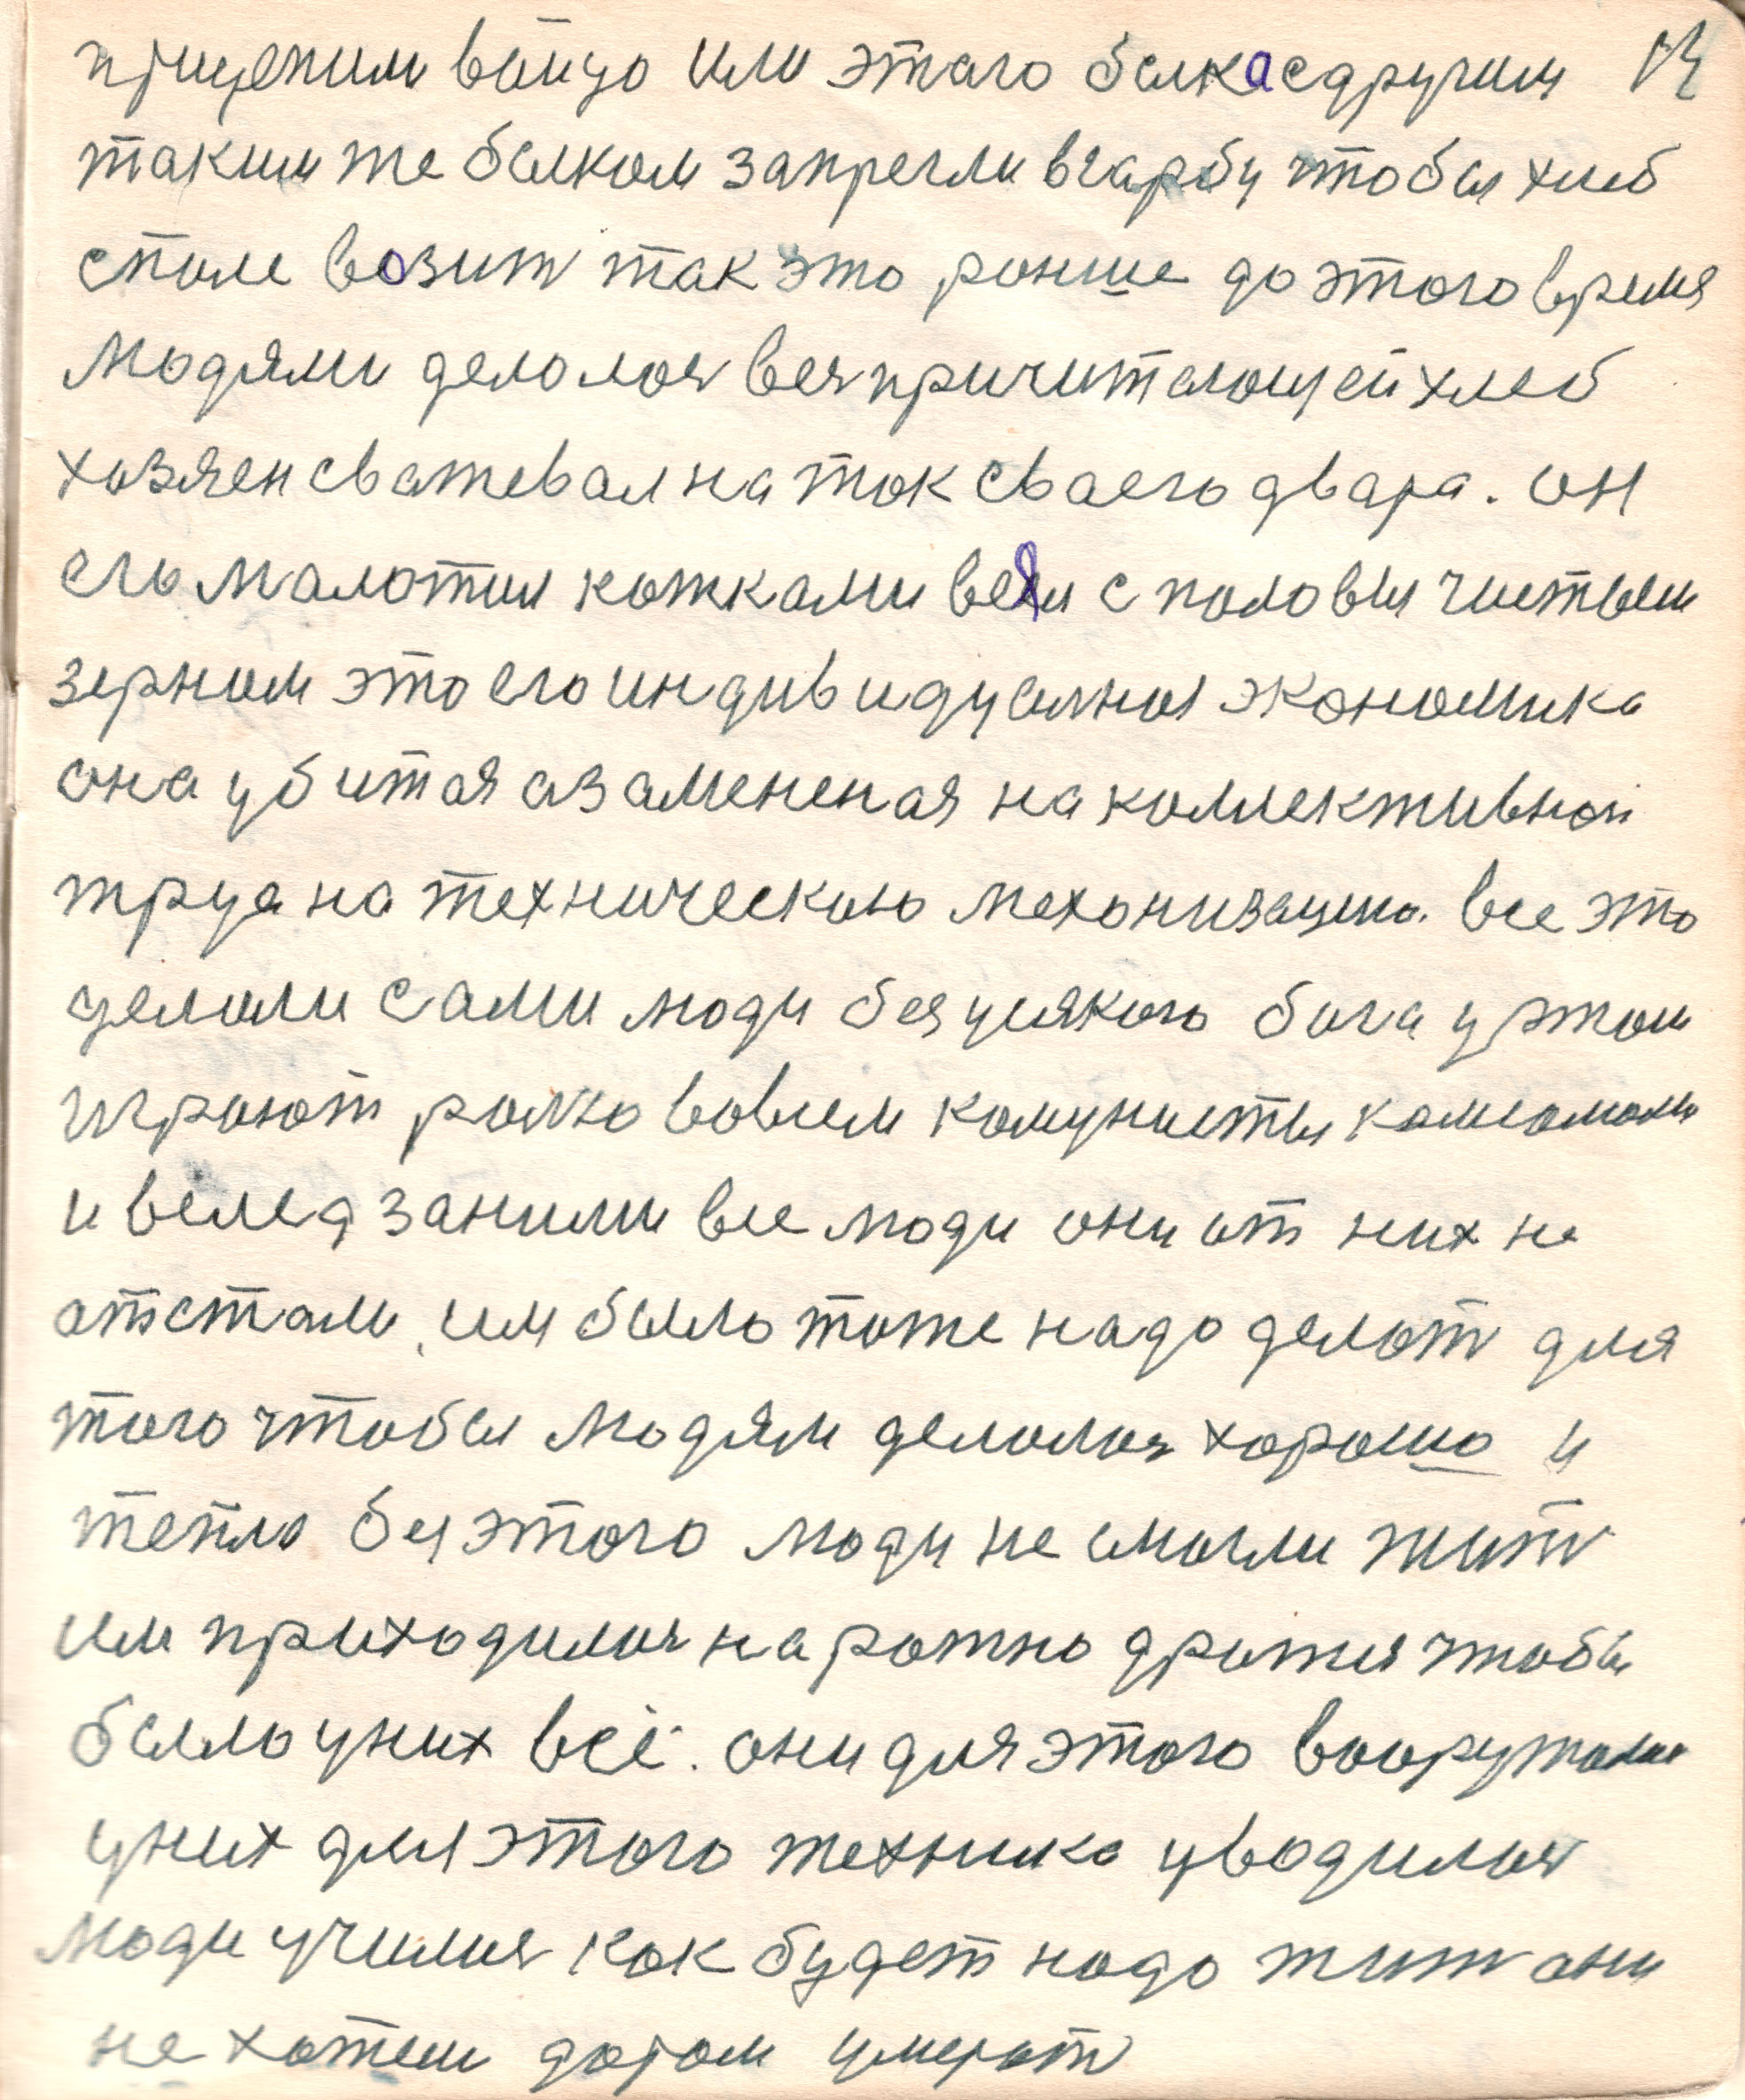 прицепили войцо или этого быка с другим 13
таким же быком запрегли в гарбу чтобы хлеб
споле возит так это ронше до этого время
Людями делолоя вся причитающей хлеб
хозяен сватевал на ток сваего двара. он
его малотил кажками веял с половы чистым
зерном это его индивидуалноя экономика
она убитая азамененая на коллективной
труд на техническою механизацию. все это
делали сами люди без усякого бога у этом
играют ролю вовсем комунисты камсамолы
и вслед заними все люди они от них не
атстали, им было тоже надо делат для
того чтобы людям делалоя хорошо и
тепло без этого люди не смогли жит
им приходилоя на ратно дратся чтобы
было у них всё. они для этого вооружалис
у них для этого техника уводилоя
люди училися как будет надо жит они
не хотели даром умерат